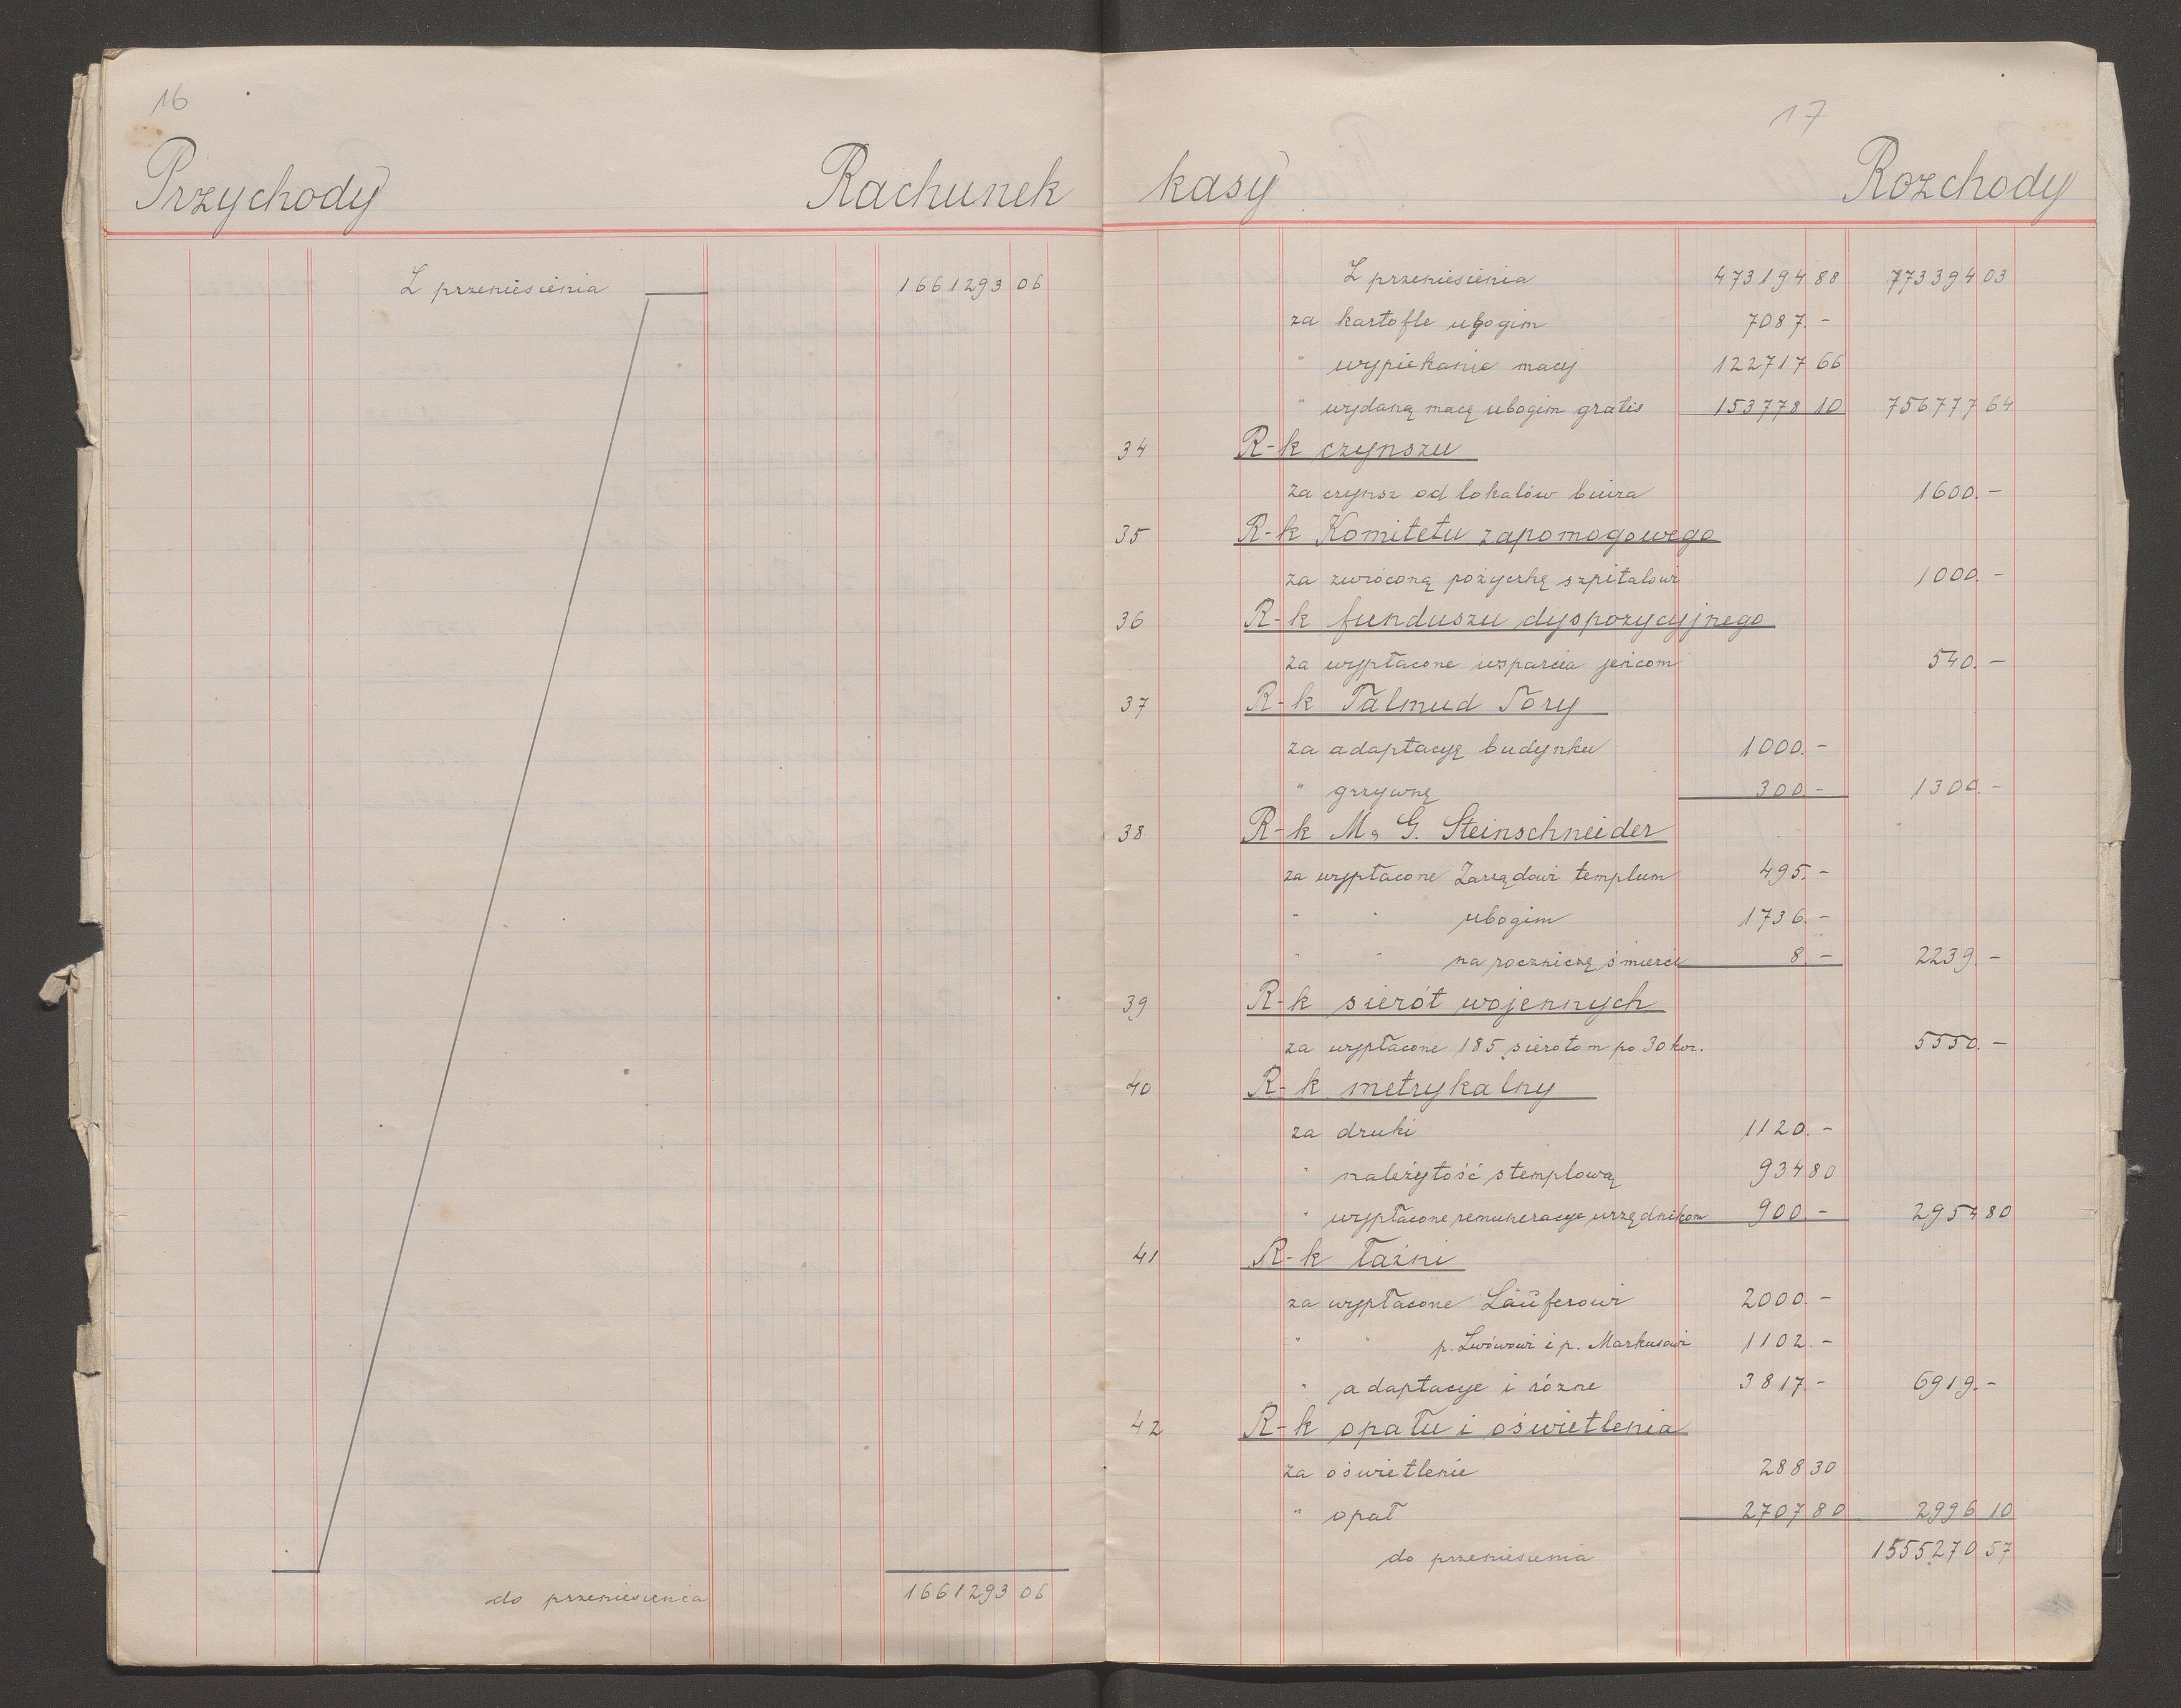 16
Przychody Rachunek
Z przeniesienia 1661293 06
do przeniesienia 1661293 06
17
kasy Rozchody
Z przeniesienia 473194 88 773394 03
za kartofle ubogim 7087.-
" wypiekanie macy 122717 66
" wydaną macę ubogim gratis 153778 10 756777 64
34 R-k czynszu
za czynsz od lokalów biura 1600.-
35 R-k Komitetu zapomogowego
za zwróconą pożyczkę szpitalowi 1000.-
36 R-k funduszu dyspozycyjnego
za wypłacone wsparcia jeńcom 540.-
37 R-k Talmud Tory
za adaptacyę budynku 1000.-
" grzywnę 300.- 1300.-
38 R-k M. G. Steinschneider
za wypłacone Zarządowi templum 495.-
" " ubogim 1736.-
" " na rocznicę śmierci 8.- 2239.-
39 R-k sierót wojennych
za wypłacone 185 sierotom po 30 kor. 5550.-
40 R-k metrykalny
za druki 1120.-
" należytość stemplową 934 80
" wypłacone remuneracye urzędnikom 900.- 2954 80
41 R-k łaźni
za wypłacone Läuferowi 2000.-
" " p. Lwówowi i p. Markusowi 1102.-
" adaptacye i różne 3817.- 6919.-
42 R-k opału i oświetlenia
za oświetlenie 288 30
" opał 2707 80 2996 10
do przeniesienia 1555270 57